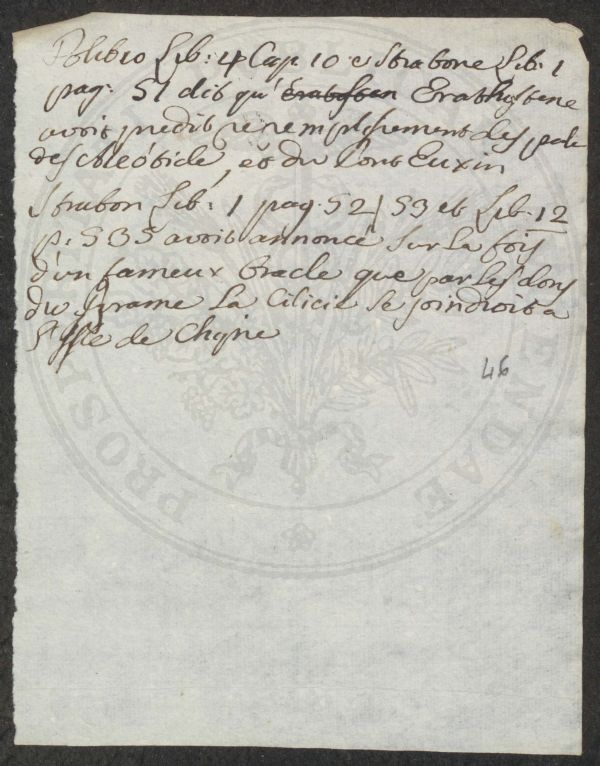 Polibio Lib: 4 Cap 10 e Strabone Lib: 1
pag: 51 dit qu' Eratosthene
avoit predit le remplissement des palu
des Meótide, et du Pont Euxin
Strabon Lib: 1 pag. 52/53 et Lib. 12
p: 535 avoit annoncé sur la foi
d'un fameux oracle que par les dons
du Pyrame la Cilicie se joindroit a
l'Isle de Chipre
46
PROSPE
ENDAE